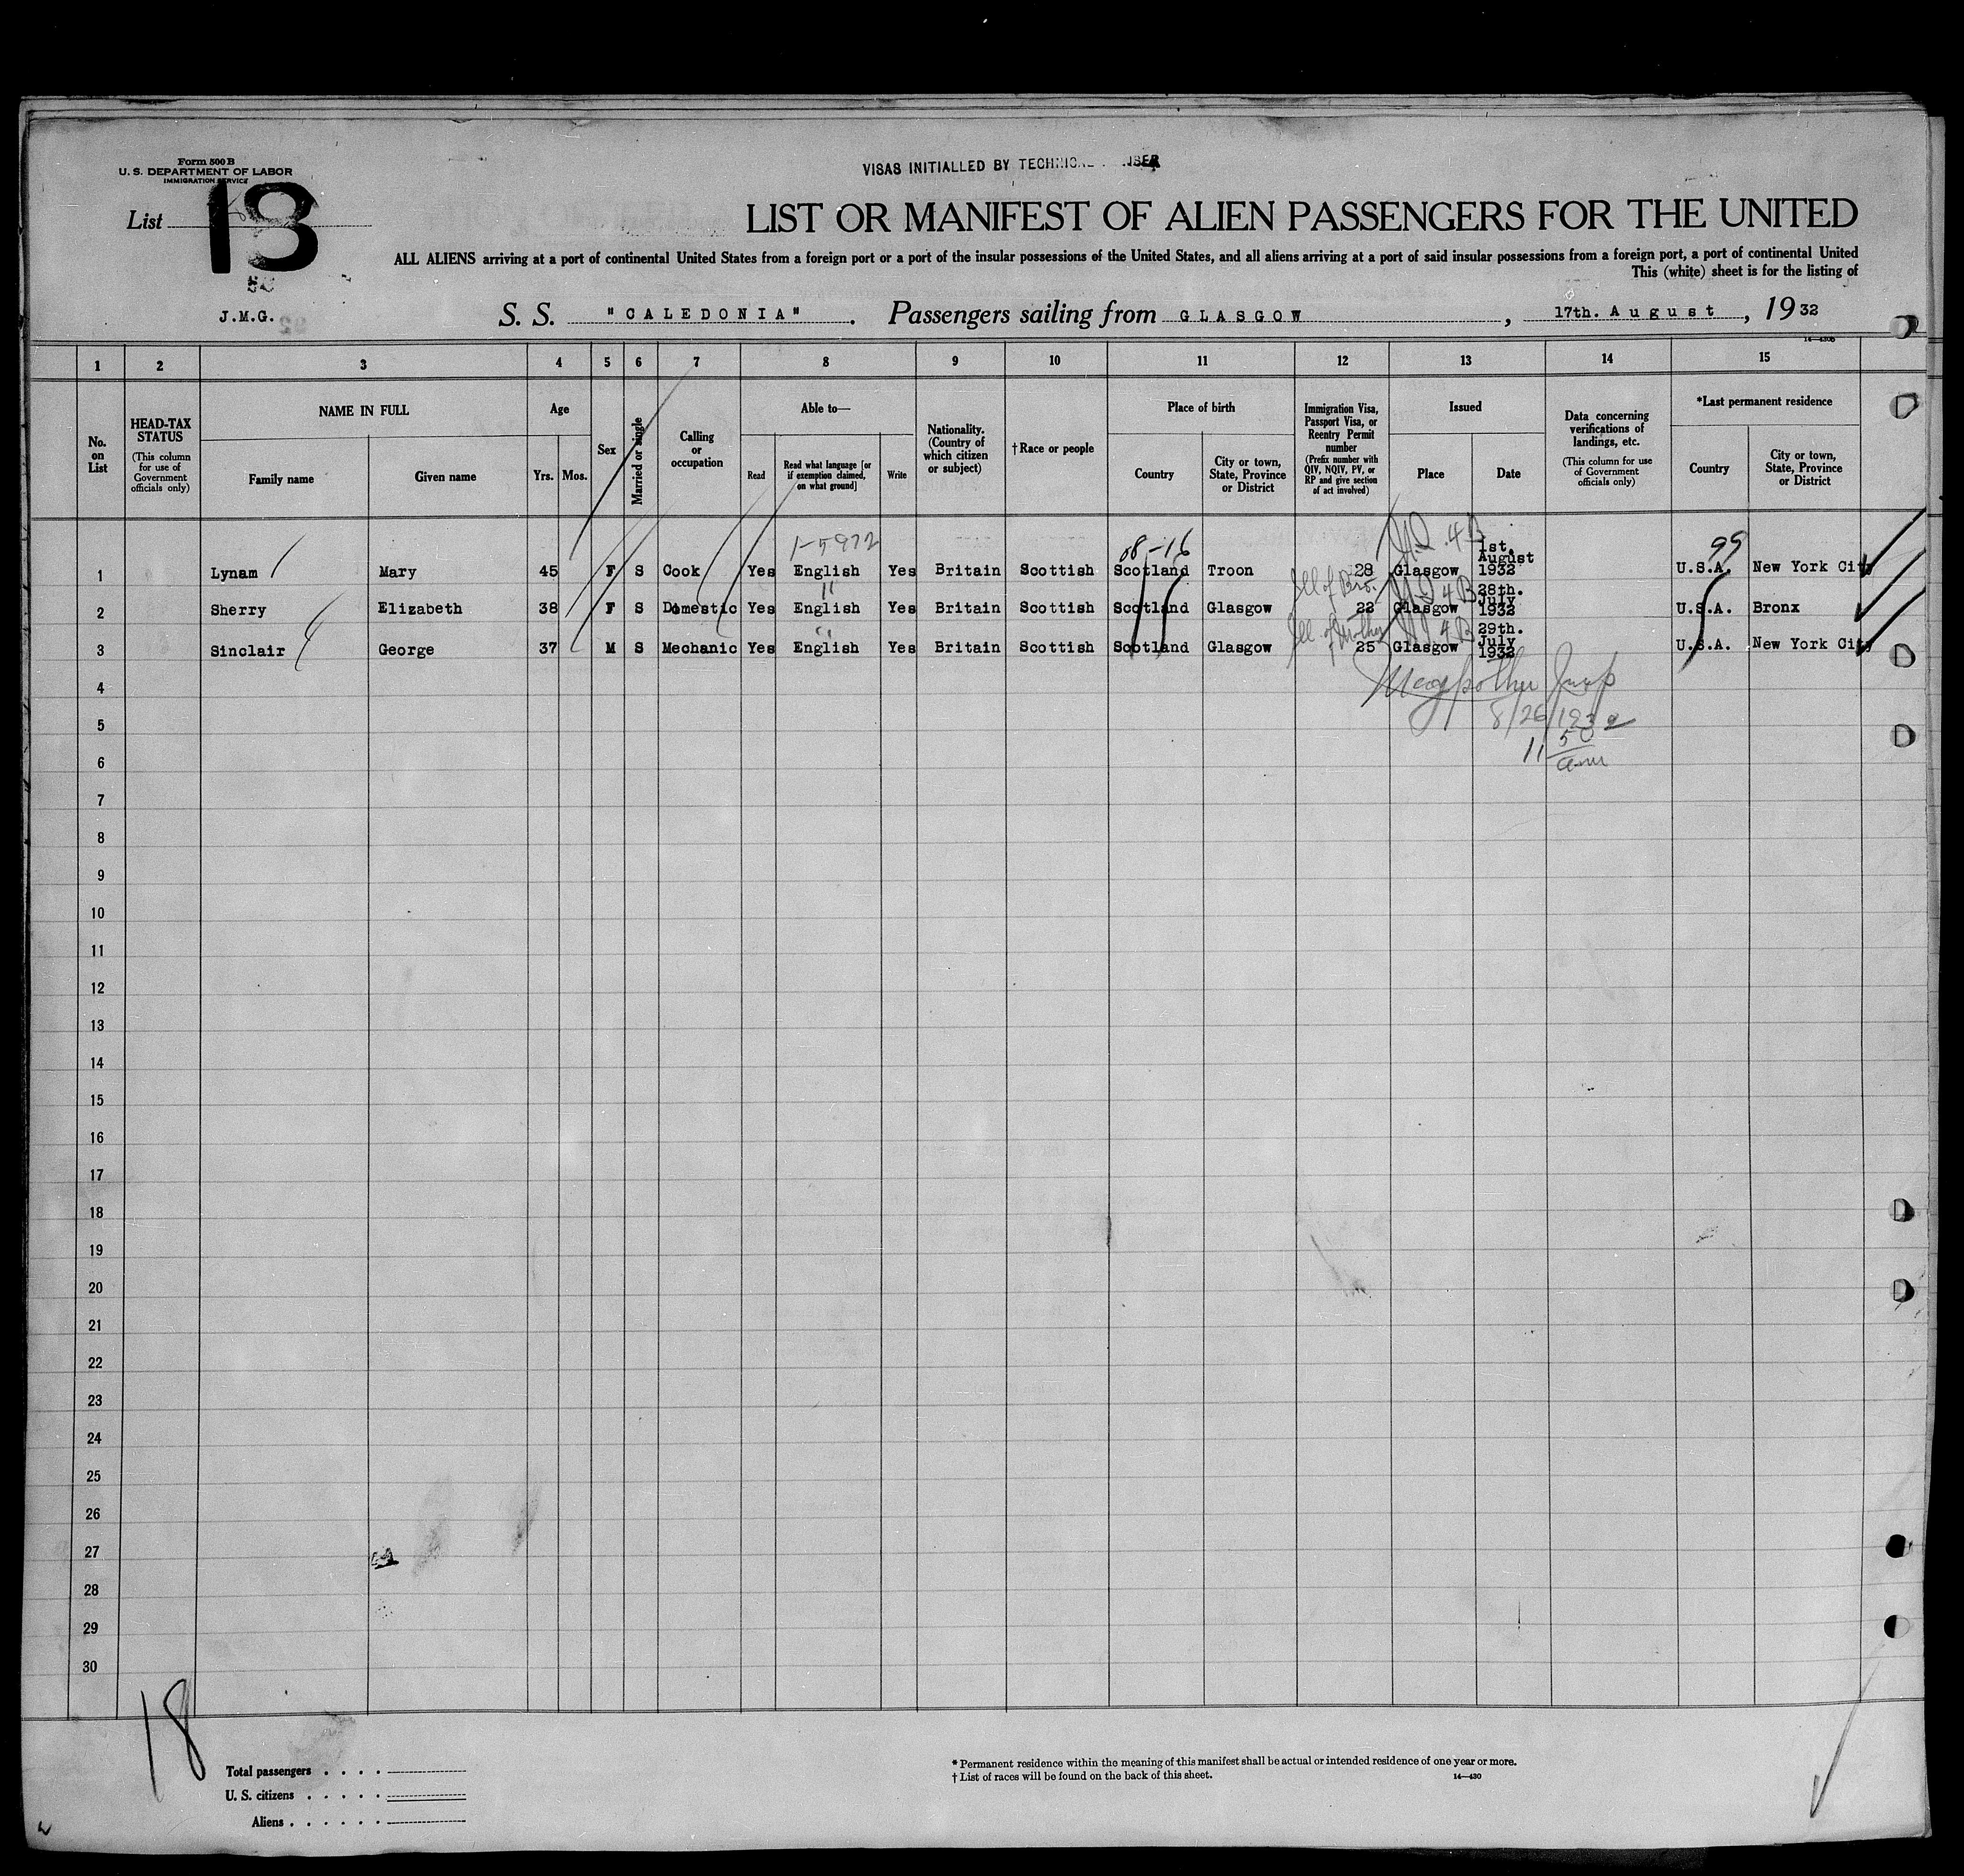 Form 500 B
U. S. DEPARTMENT OF LABOR
IMMIGRATION SERVICE
VISAS INITIALLED BY TECHNICAL
List 18
LIST OR MANIFEST OF ALIEN PASSENGERS FOR THE UNITED
ALL ALIENS arriving at a port of continental United States from a foreign port or a port of the insular possessions of the United States, and all aliens arriving at a port of said insular possessions from a foreign port, a port of continental United
This (white) sheet is for the listing of
J.M.G. S. S. "CALEDONIA". Passengers sailing from GLASGOW, 17th. August, 1932
1 2 3 4 5 6 7 8 9 10 11 12 13 14 15
No. on List
HEAD-TAX STATUS
(This column for use of Government officials only)
NAME IN FULL
Family name
Given name
Age
Yrs. Mos.
Sex
Married or single
Calling or occupation
Able to—
Read
Read what language [or if exemption claimed, on what ground]
Write
Nationality. (Country of which citizen or subject)
† Race or people
Place of birth
Country
City or town, State, Province or District
Immigration Visa, Passport Visa, or Reentry Permit number
(Prefix number with QIV, NQIV, PV, or RP and give section of act involved)
Issued
Place
Date
Data concerning verifications of landings, etc.
(This column for use of Government officials only)
*Last permanent residence
Country
City or town, State, Province or District
1-5972 99
1 Lynam Mary 45 F S Cook Yes English Yes Britain Scottish Scotland Troon 28 Glasgow 1st. August 1932 U.S.A. New York City
2 Sherry Elizabeth 38 F S Domestic Yes English Yes Britain Scottish Scotland Glasgow 22 Glasgow 28th. July 1932 U.S.A. Bronx
3 Sinclair George 37 M S Mechanic Yes English Yes Britain Scottish Scotland Glasgow 25 Glasgow 29th. July 1932 U.S.A. New York City
4
5 8/26/1932
6 11 50 am
7
8
9
10
11
12
13
14
15
16
17
18
19
20
21
22
23
24
25
26
27
28
29
30
18
Total passengers . . . .
U. S. citizens . . . . .
Aliens . . . . . .
* Permanent residence within the meaning of this manifest shall be actual or intended residence of one year or more.
† List of races will be found on the back of this sheet. 14—430